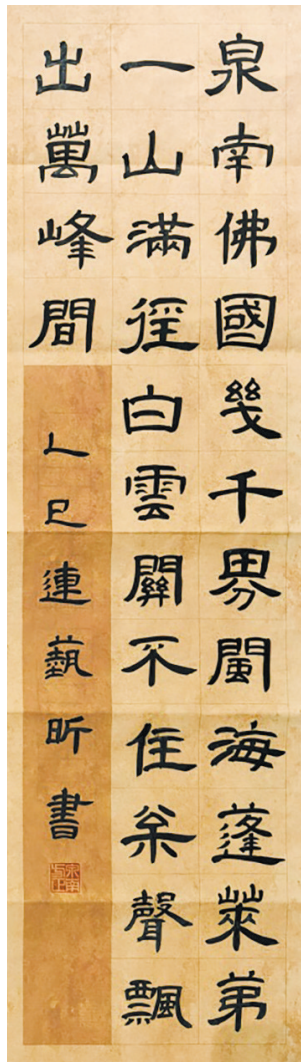 泉南佛國幾千界閩海蓬萊弟
一山滿徑白雲關不住枀聲飄
出萬峰間
乙巳連蓺昕書